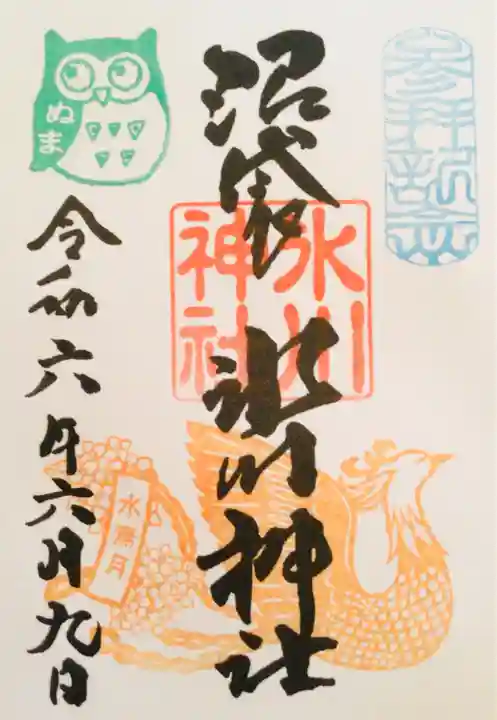 参拝記念
沼袋 氷川神社
氷川
神社
ぬま
水無月
令和六年六月九日